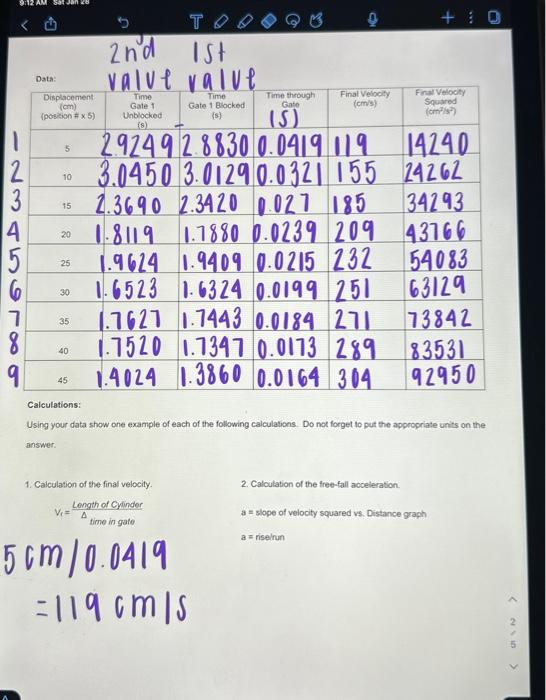 9:12 AM Sat Jan 28
2nd 1st
Data: value value
Displacement (cm) (position # x 5) Time Gate 1 Unblocked (s) Time Gate 1 Blocked (s) Time through Gate (s) Final Velocity (cm/s) Final Velocity Squared (cm²/s²)
1 5 2.9249 2.8830 0.0419 119 14240
2 10 3.0450 3.0129 0.0321 155 24262
3 15 2.3690 2.3420 0.027 185 34293
4 20 1.8119 1.7880 0.0239 209 43766
5 25 1.9624 1.9409 0.0215 232 54083
6 30 1.6523 1.6324 0.0199 251 63129
7 35 1.7627 1.7443 0.0184 271 73842
8 40 1.7520 1.7347 0.0173 289 83531
9 45 1.4024 1.3860 0.0164 304 92950
Calculations:
Using your data show one example of each of the following calculations. Do not forget to put the appropriate units on the
answer.
1. Calculation of the final velocity.
Vf = Length of Cylinder
Δ time in gate
5 cm/0.0419
=119 cm/s
2. Calculation of the free-fall acceleration.
a = slope of velocity squared vs. Distance graph
a = rise/run
2
5